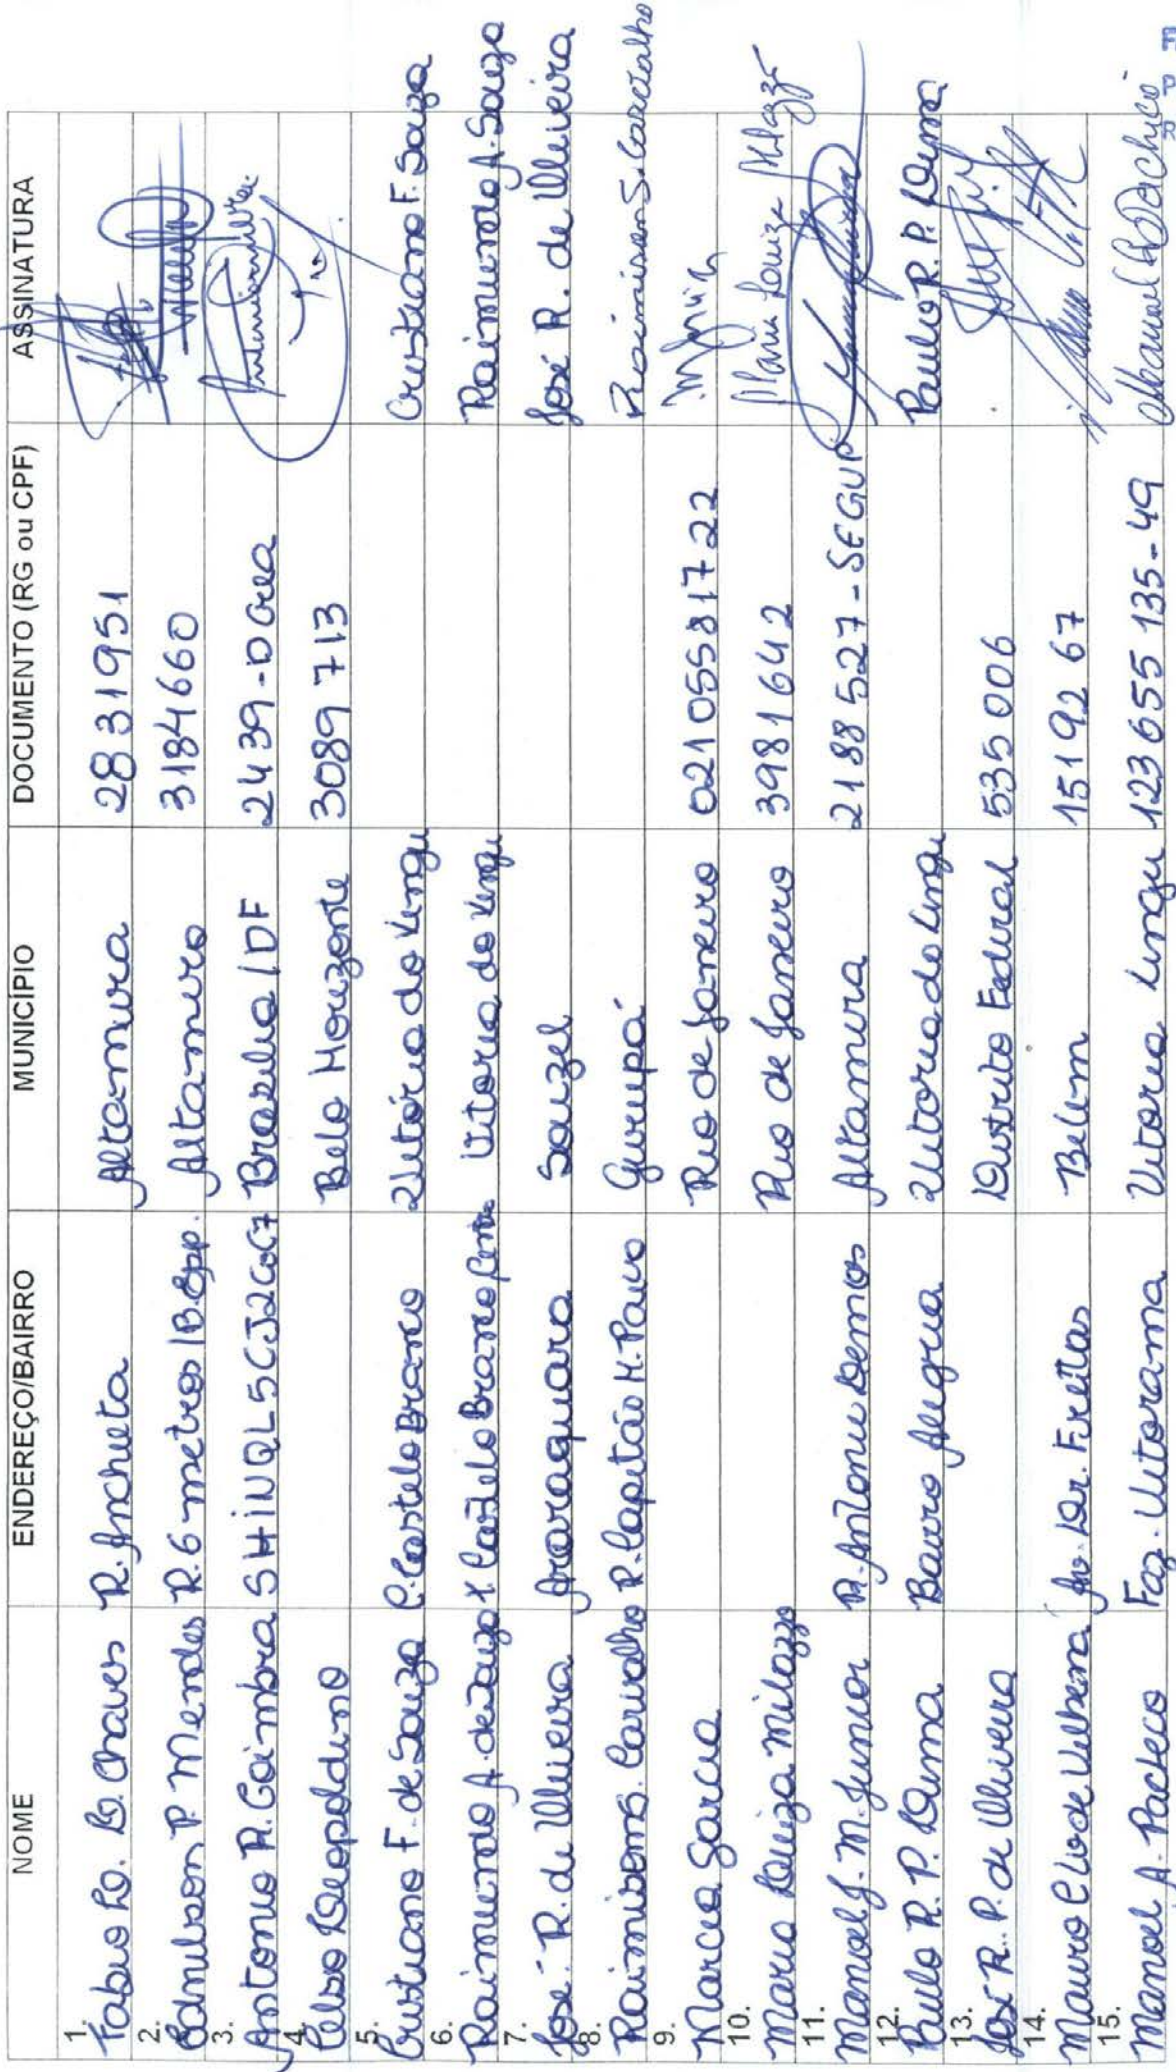 NOME ENDEREÇO/BAIRRO MUNICÍPIO DOCUMENTO (RG ou CPF) ASSINATURA
1. Fabio D. D. Chaves R. Anchieta Altamira 2831951
2. Edmilson P. Mendes R. 6 metros / B. Altamira 3184660
3. Antonio R. Coimbra SHINQL5CJ2CoC7 Brasilia / DF 2439-D
4. Celso Leopoldino Belo Horizonte 3089713
5. Cristiano F. de Souza C. Castelo Branco Vitória do Xingu Cristiano F. Souza
6. Raimundo A. de Souza X Castelo Branco Vitoria do Xingu Raimundo A. Souza
7. José R. de Oliveira Araraquara Souzel José R. de Oliveira
8. Raimison S. Carvalho R. Capitão H. Paivo Gurupá Raimison S. Carvalho
9. Marcia Garcia Rio de Janeiro 02105581722
10. Maria Luiza Milazzo Rio de Janeiro 3981642 Maria Louiza Milazzo
11. Manoel J. M. Junior R. Antonio Lemos Altamira 2188527-SEGUP
12. Paulo R. P. Lima Bairro Alegria Vitoria do Xingu Paulo R. P. Lima
13. José R. P. de Oliveira Distrito Federal 535006
14. Mauro C. de Vilhena Av. Dr. Freitas Belém 1519267
15. Manoel A. Pacheco Faz. Vitorama Vitoria Xingu 123655135-49 Manoel A Pacheco